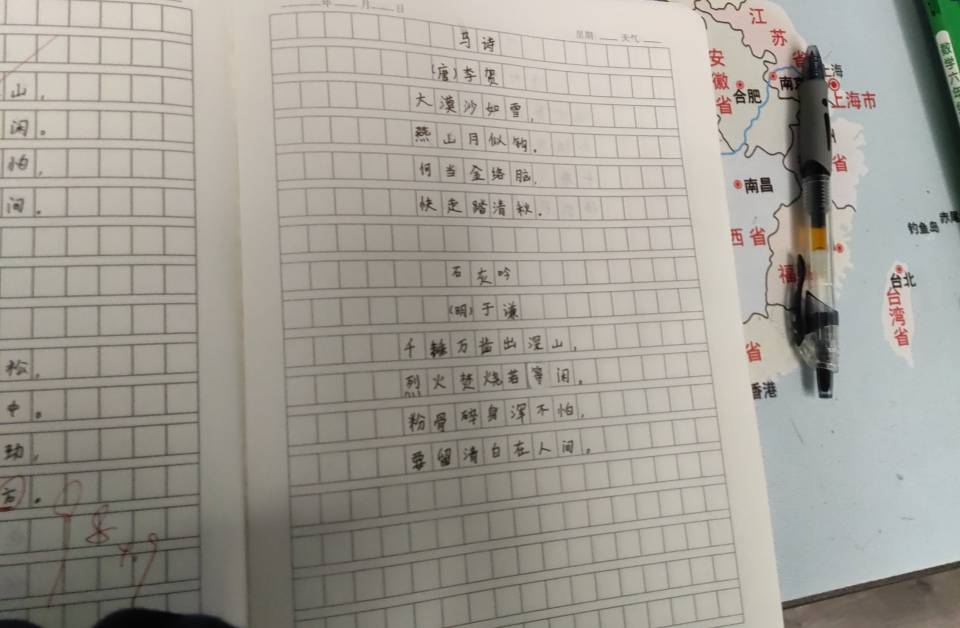 山，
闲。
怕，
间。
松，
中。
劲，
年 月 日
星期 天气
马诗
(唐)李贺
大漠沙如雪，
燕山月似钩。
何当金络脑，
快走踏清秋。
石灰吟
(明)于谦
千锤万凿出深山，
烈火焚烧若等闲。
粉骨碎身浑不怕，
要留清白在人间。
江苏省
安徽省
合肥
南京
上海
上海市
南昌
西省
福
省
省
香港
钓鱼岛
台北
台湾省
数学六年